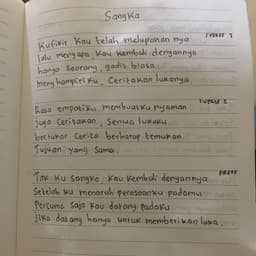 Sangka
VERSE 1
Kufikir Kau telah melupakan nya
lalu mengapa, Kau kembali dengannya
hanya seorang, gadis biasa
menghampiri ku, Ceritakan lukanya
VERSE 2
Rasa empatiku membuatku nyaman
Juga Ceritakan, semua lukaku
bertukar Cerita berharap temukan
Tujuan yang sama
Tak Ku sangka, Kau Kembali dengannya
Setelah ku menaruh perasaanku padamu
Percuma saja Kau datang padaku
Jika datang hanya untuk memberikan luka